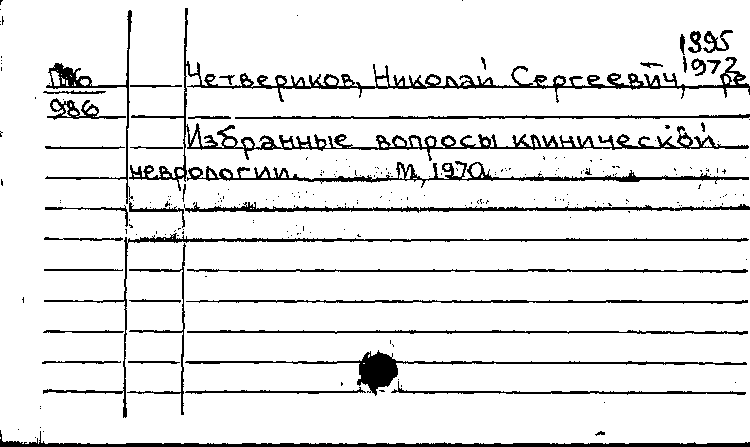 1895
1972
Четвериков, Николай Сергеевич, ре
986
Избранные вопросы клинической
неврологии. М., 1970.